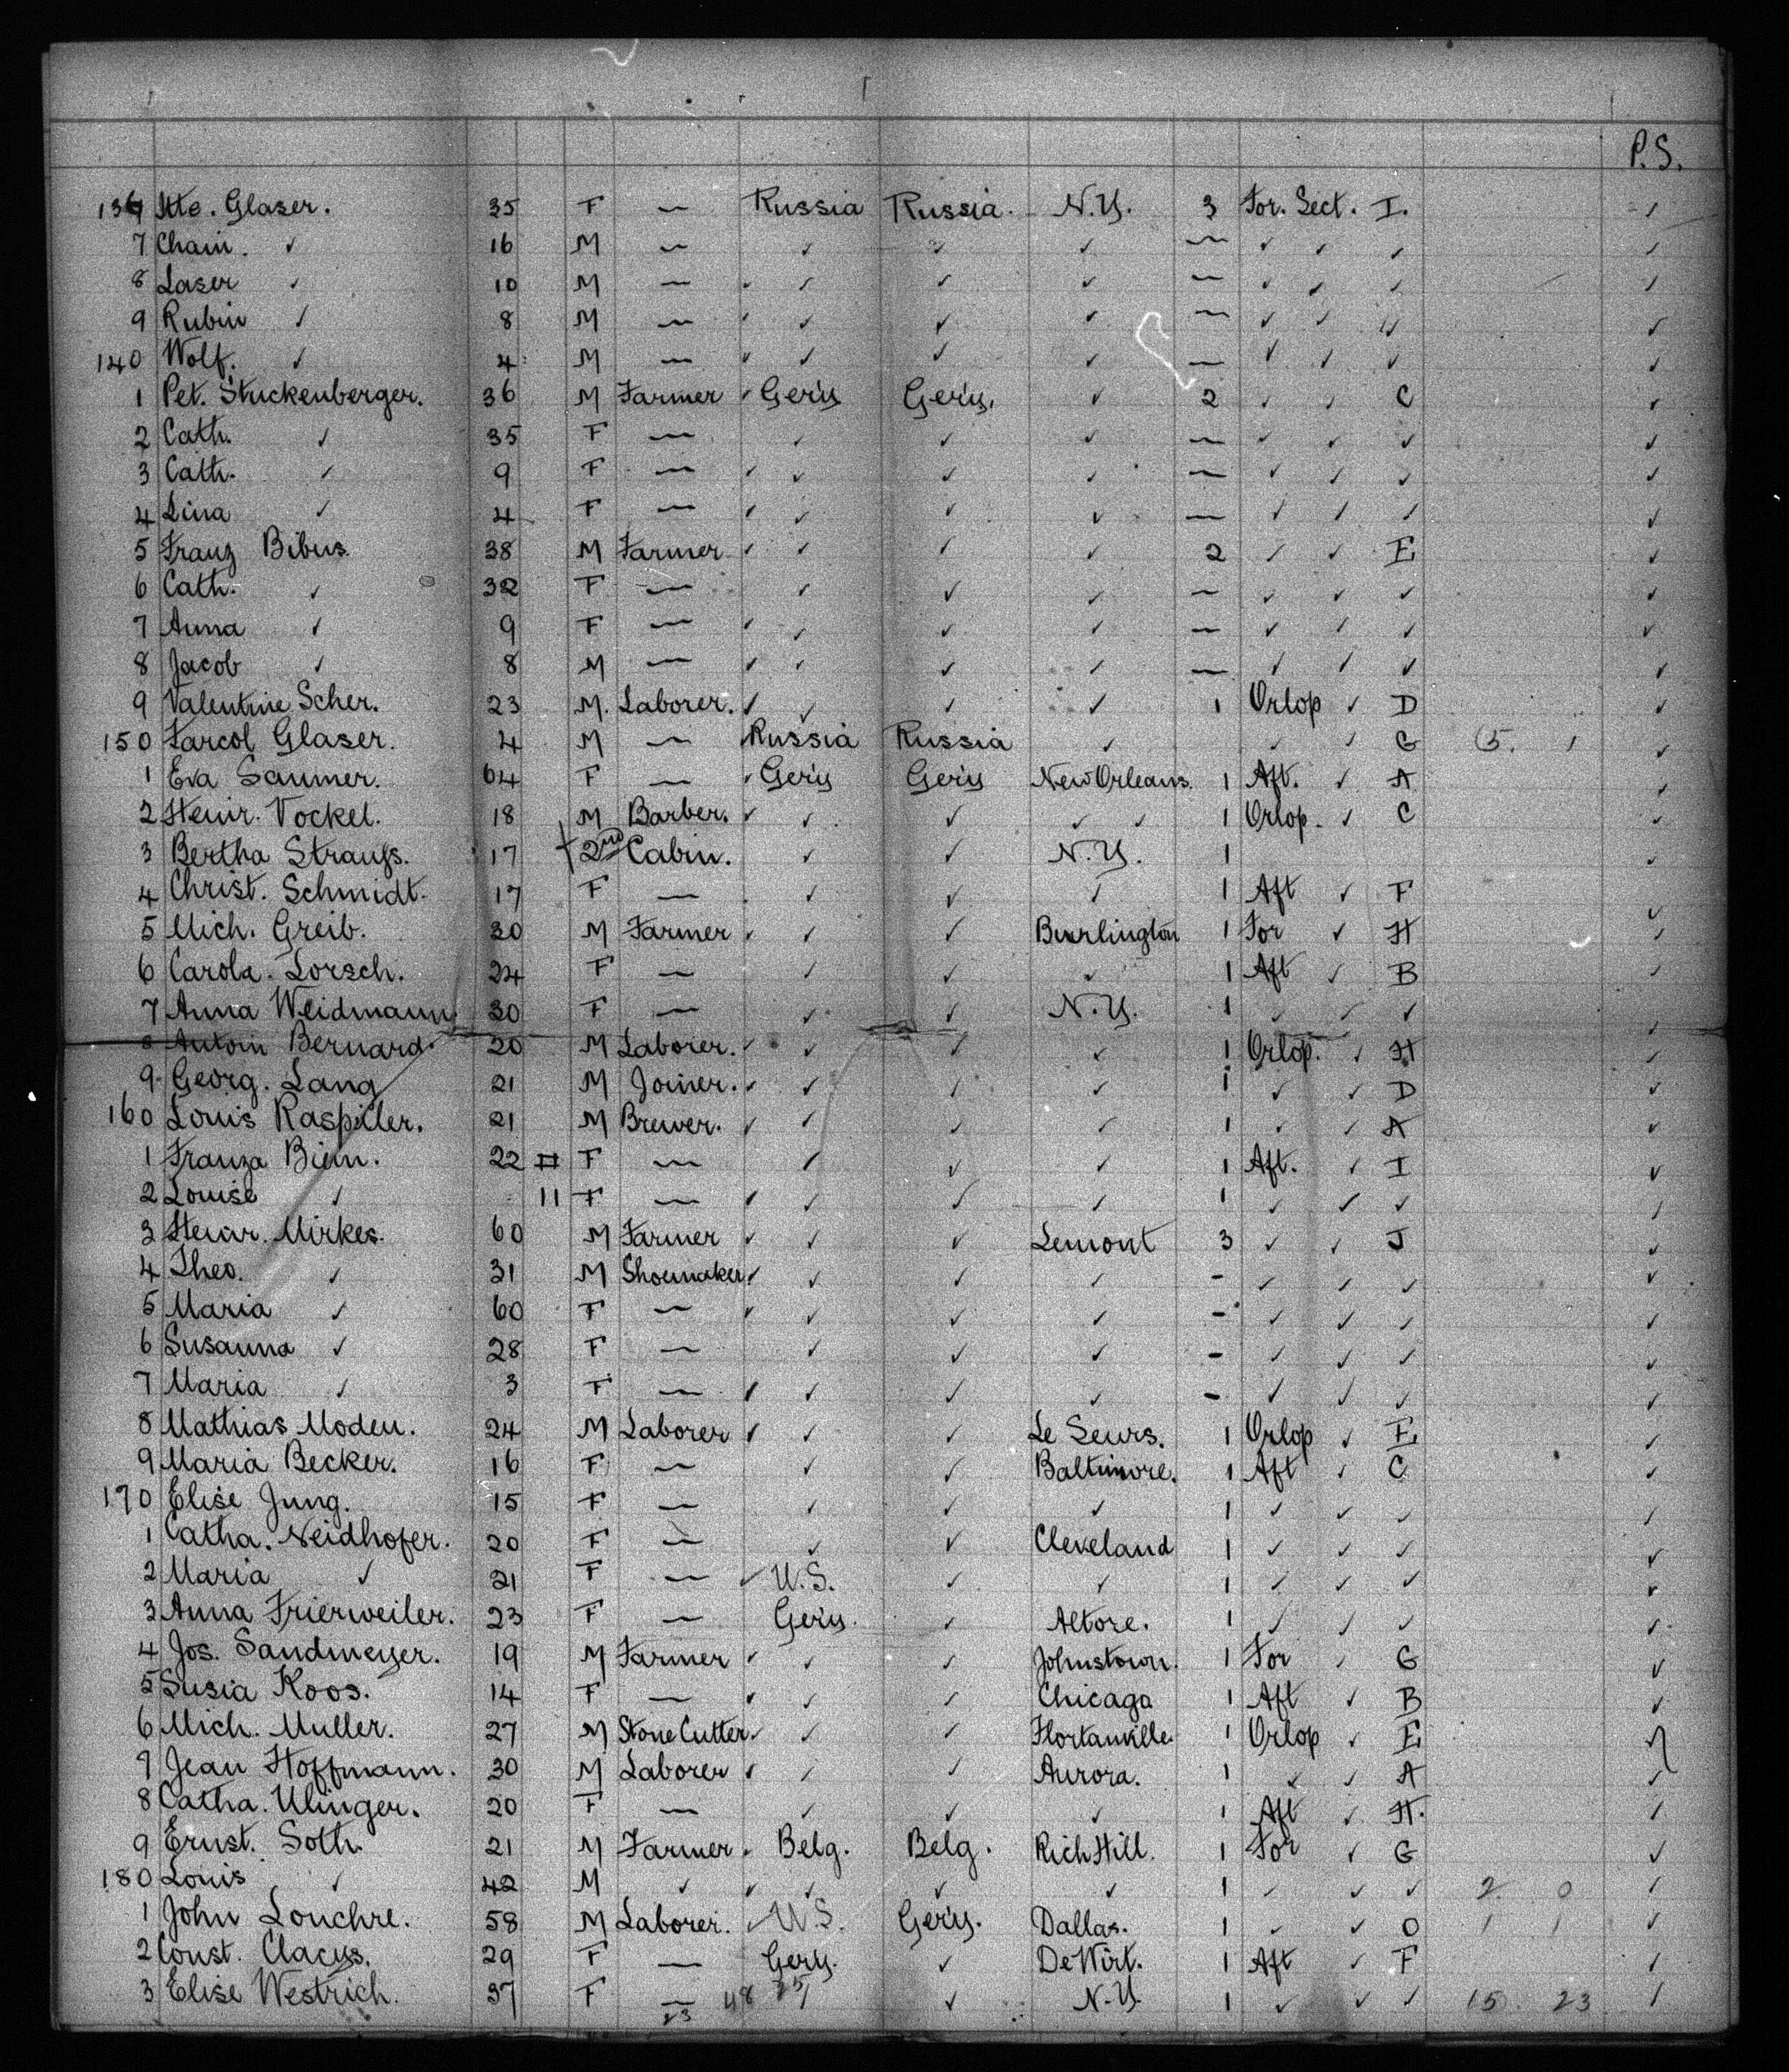 P.S.
136 Itte. Glaser. 35 F — Russia Russia. N.Y. 3 For. Sect. I. ✓
7 Chain. ✓ 16 M — ✓ ✓ ✓ — ✓ ✓ ✓ ✓
8 Laser ✓ 10 M — ✓ ✓ ✓ — ✓ ✓ ✓ ✓
9 Rubin ✓ 8 M — ✓ ✓ ✓ — ✓ ✓ ✓ ✓
140 Wolf. ✓ 4 M — ✓ ✓ ✓ — ✓ ✓ ✓ ✓
1 Pet. Stuckenberger. 36 M Farmer ✓ Ger'y Ger'y, ✓ 2 ✓ ✓ C ✓
2 Cath. ✓ 35 F — ✓ ✓ ✓ — ✓ ✓ ✓ ✓
3 Cath. ✓ 9 F — ✓ ✓ ✓ ✓ — ✓ ✓ ✓ ✓
4 Lina ✓ 4 F — ✓ ✓ ✓ ✓ — ✓ ✓ ✓ ✓
5 Franz Bibus 38 M Farmer ✓ ✓ ✓ ✓ 2 ✓ ✓ E ✓
6 Cath. ✓ 32 F — ✓ ✓ ✓ — ✓ ✓ ✓ ✓
7 Anna ✓ 9 F — ✓ ✓ ✓ ✓ — ✓ ✓ ✓ ✓
8 Jacob ✓ 8 M — ✓ ✓ ✓ ✓ — ✓ ✓ ✓ ✓
9 Valentine Scher. 23 M. Laborer. ✓ ✓ ✓ ✓ 1 Orlop ✓ D ✓
150 Jarcol Glaser. 4 M — Russia Russia ✓ ✓ ✓ G 15. 1 ✓
1 Eva Saumer. 64 F — Ger'y Ger'y New Orleans. 1 Aft. ✓ A ✓
2 Heinr. Vockel. 18 M Barber. ✓ ✓ ✓ ✓ ✓ 1 Orlop. ✓ C ✓
3 Bertha Strauss. 17 2nd Cabin. ✓ ✓ N.Y. 1 ✓
4 Christ. Schmidt. 17 F — ✓ ✓ ✓ 1 Aft ✓ F ✓
5 Mich. Greib. 30 M Farmer ✓ ✓ ✓ Burlington 1 For ✓ H ✓
6 Carola. Lorsch. 24 F — ✓ ✓ ✓ 1 Aft ✓ B ✓
7 Anna Weidmann 30 F — ✓ ✓ N.Y. 1 ✓ ✓ ✓ ✓
8 Antoin Bernard. 20 M Laborer. ✓ ✓ ✓ ✓ 1 Orlop. ✓ H ✓
9 Georg. Lang 21 M Joiner. ✓ ✓ ✓ ✓ 1 ✓ ✓ D ✓
160 Louis Raspiller. 21 M Brewer. ✓ ✓ ✓ ✓ 1 ✓ ✓ A ✓
1 Franza Bien. 22 F — ✓ ✓ ✓ 1 Aft. ✓ I ✓
2 Louise ✓ 11 F — ✓ ✓ ✓ ✓ 1 ✓ ✓ ✓ ✓
3 Heinr. Mirkes. 60 M Farmer ✓ ✓ ✓ Lemont 3 ✓ ✓ J ✓
4 Theo. ✓ 31 M Shoemaker ✓ ✓ ✓ ✓ - ✓ ✓ ✓ ✓
5 Maria ✓ 60 F — ✓ ✓ ✓ ✓ - ✓ ✓ ✓ ✓
6 Susanna ✓ 28 F — ✓ ✓ ✓ - ✓ ✓ ✓ ✓
7 Maria ✓ 3 F — ✓ ✓ ✓ ✓ - ✓ ✓ ✓ ✓
8 Mathias Moden. 24 M Laborer ✓ ✓ ✓ Le Seurs. 1 Orlop ✓ E ✓
9 Maria Becker. 16 F — ✓ ✓ Baltimore. 1 Aft ✓ C ✓
170 Elise Jung. 15 F — ✓ ✓ ✓ 1 ✓ ✓ ✓ ✓
1 Catha. Neidhofer. 20 F — ✓ ✓ Cleveland 1 ✓ ✓ ✓ ✓
2 Maria ✓ 21 F — ✓ U.S. ✓ ✓ 1 ✓ ✓ ✓ ✓
3 Anna Frierweiler. 23 F — Ger'y. ✓ Altore. 1 ✓ ✓ ✓ ✓
4 Jos. Sandmeyer. 19 M Farmer ✓ ✓ ✓ Johnstown. 1 For ✓ G ✓
5 Susia Koos. 14 F — ✓ ✓ ✓ Chicaga 1 Aft ✓ B ✓
6 Mich. Muller. 27 M Stone Cutter ✓ ✓ ✓ 1 Orlop ✓ E ✓
7 Jean Hoffmann. 30 M Laborer ✓ ✓ ✓ Aurora. 1 ✓ ✓ A ✓
8 Catha. Ulinger. 20 F — ✓ ✓ ✓ 1 Aft ✓ H. ✓
9 Ernst. Soth. 21 M Farmer ✓ Belg. Belg. Rich Hill. 1 For ✓ G ✓
180 Louis ✓ 42 M ✓ ✓ ✓ ✓ ✓ 1 ✓ ✓ ✓ 2. 0 ✓
1 John Louchre. 58 M Laborer. ✓ U.S. Ger'y. Dallas. 1 ✓ ✓ O 1 1 ✓
2 Const. Claeys. 29 F — Gery. ✓ De Wirt. 1 Aft ✓ F ✓
3 Elise Westrich. 37 F — ✓ ✓ N.Y. 1 ✓ ✓ ✓ 15. 23 ✓
23 48 25